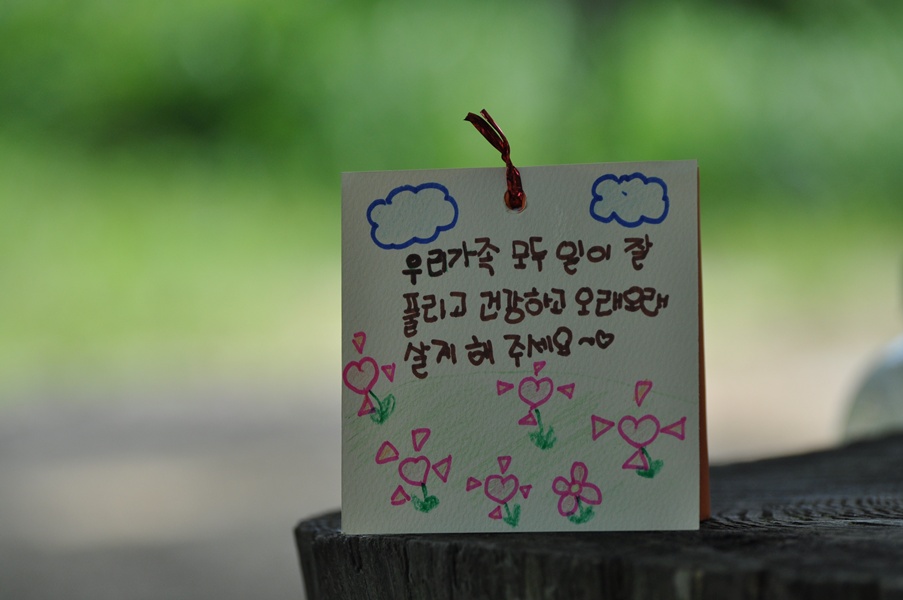 우리가족 모두 일이 잘
풀리고 건강하고 오래오래
살게 해 주세요~♡